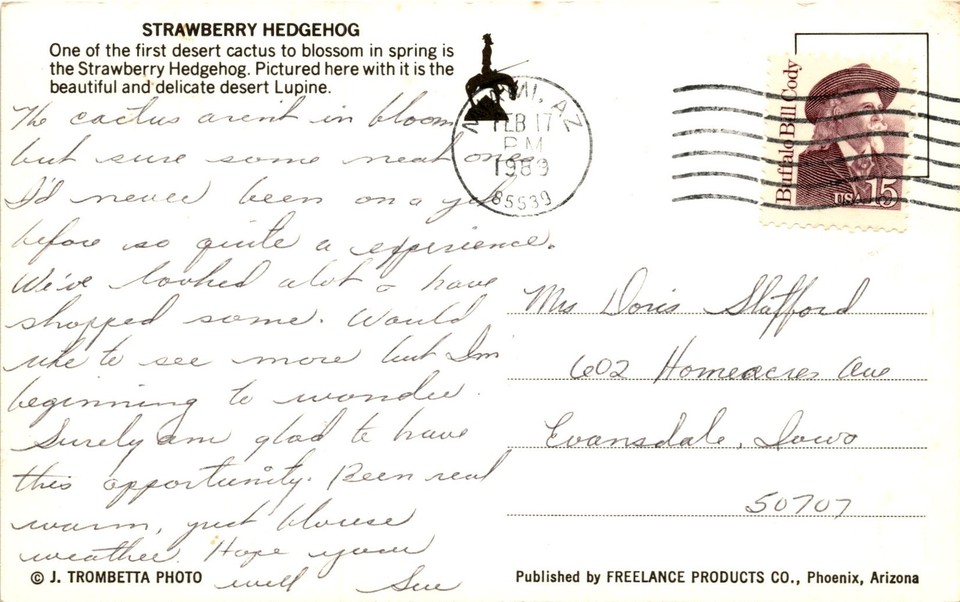 STRAWBERRY HEDGEHOG
One of the first desert cactus to blossom in spring is
the Strawberry Hedgehog. Pictured here with it is the
beautiful and delicate desert Lupine.
The cactus aren't in bloom
but sure some neat ones
I'd never been on a
before so quite a experience.
We've looked alot & have
shopped some. Would
like to see more but I'm
beginning to wonder.
Surely am glad to have
this opportunity. Been real
warm, just blouse
weather. Hope your
well Sue
© J. TROMBETTA PHOTO
MIAMI, AZ
FEB 17
PM
1989
85539
Buffalo Bill Cody
USA 15
Mrs Doris Stafford
602 Homeacres Ave
Evansdale, Iowa
50707
Published by FREELANCE PRODUCTS CO., Phoenix, Arizona